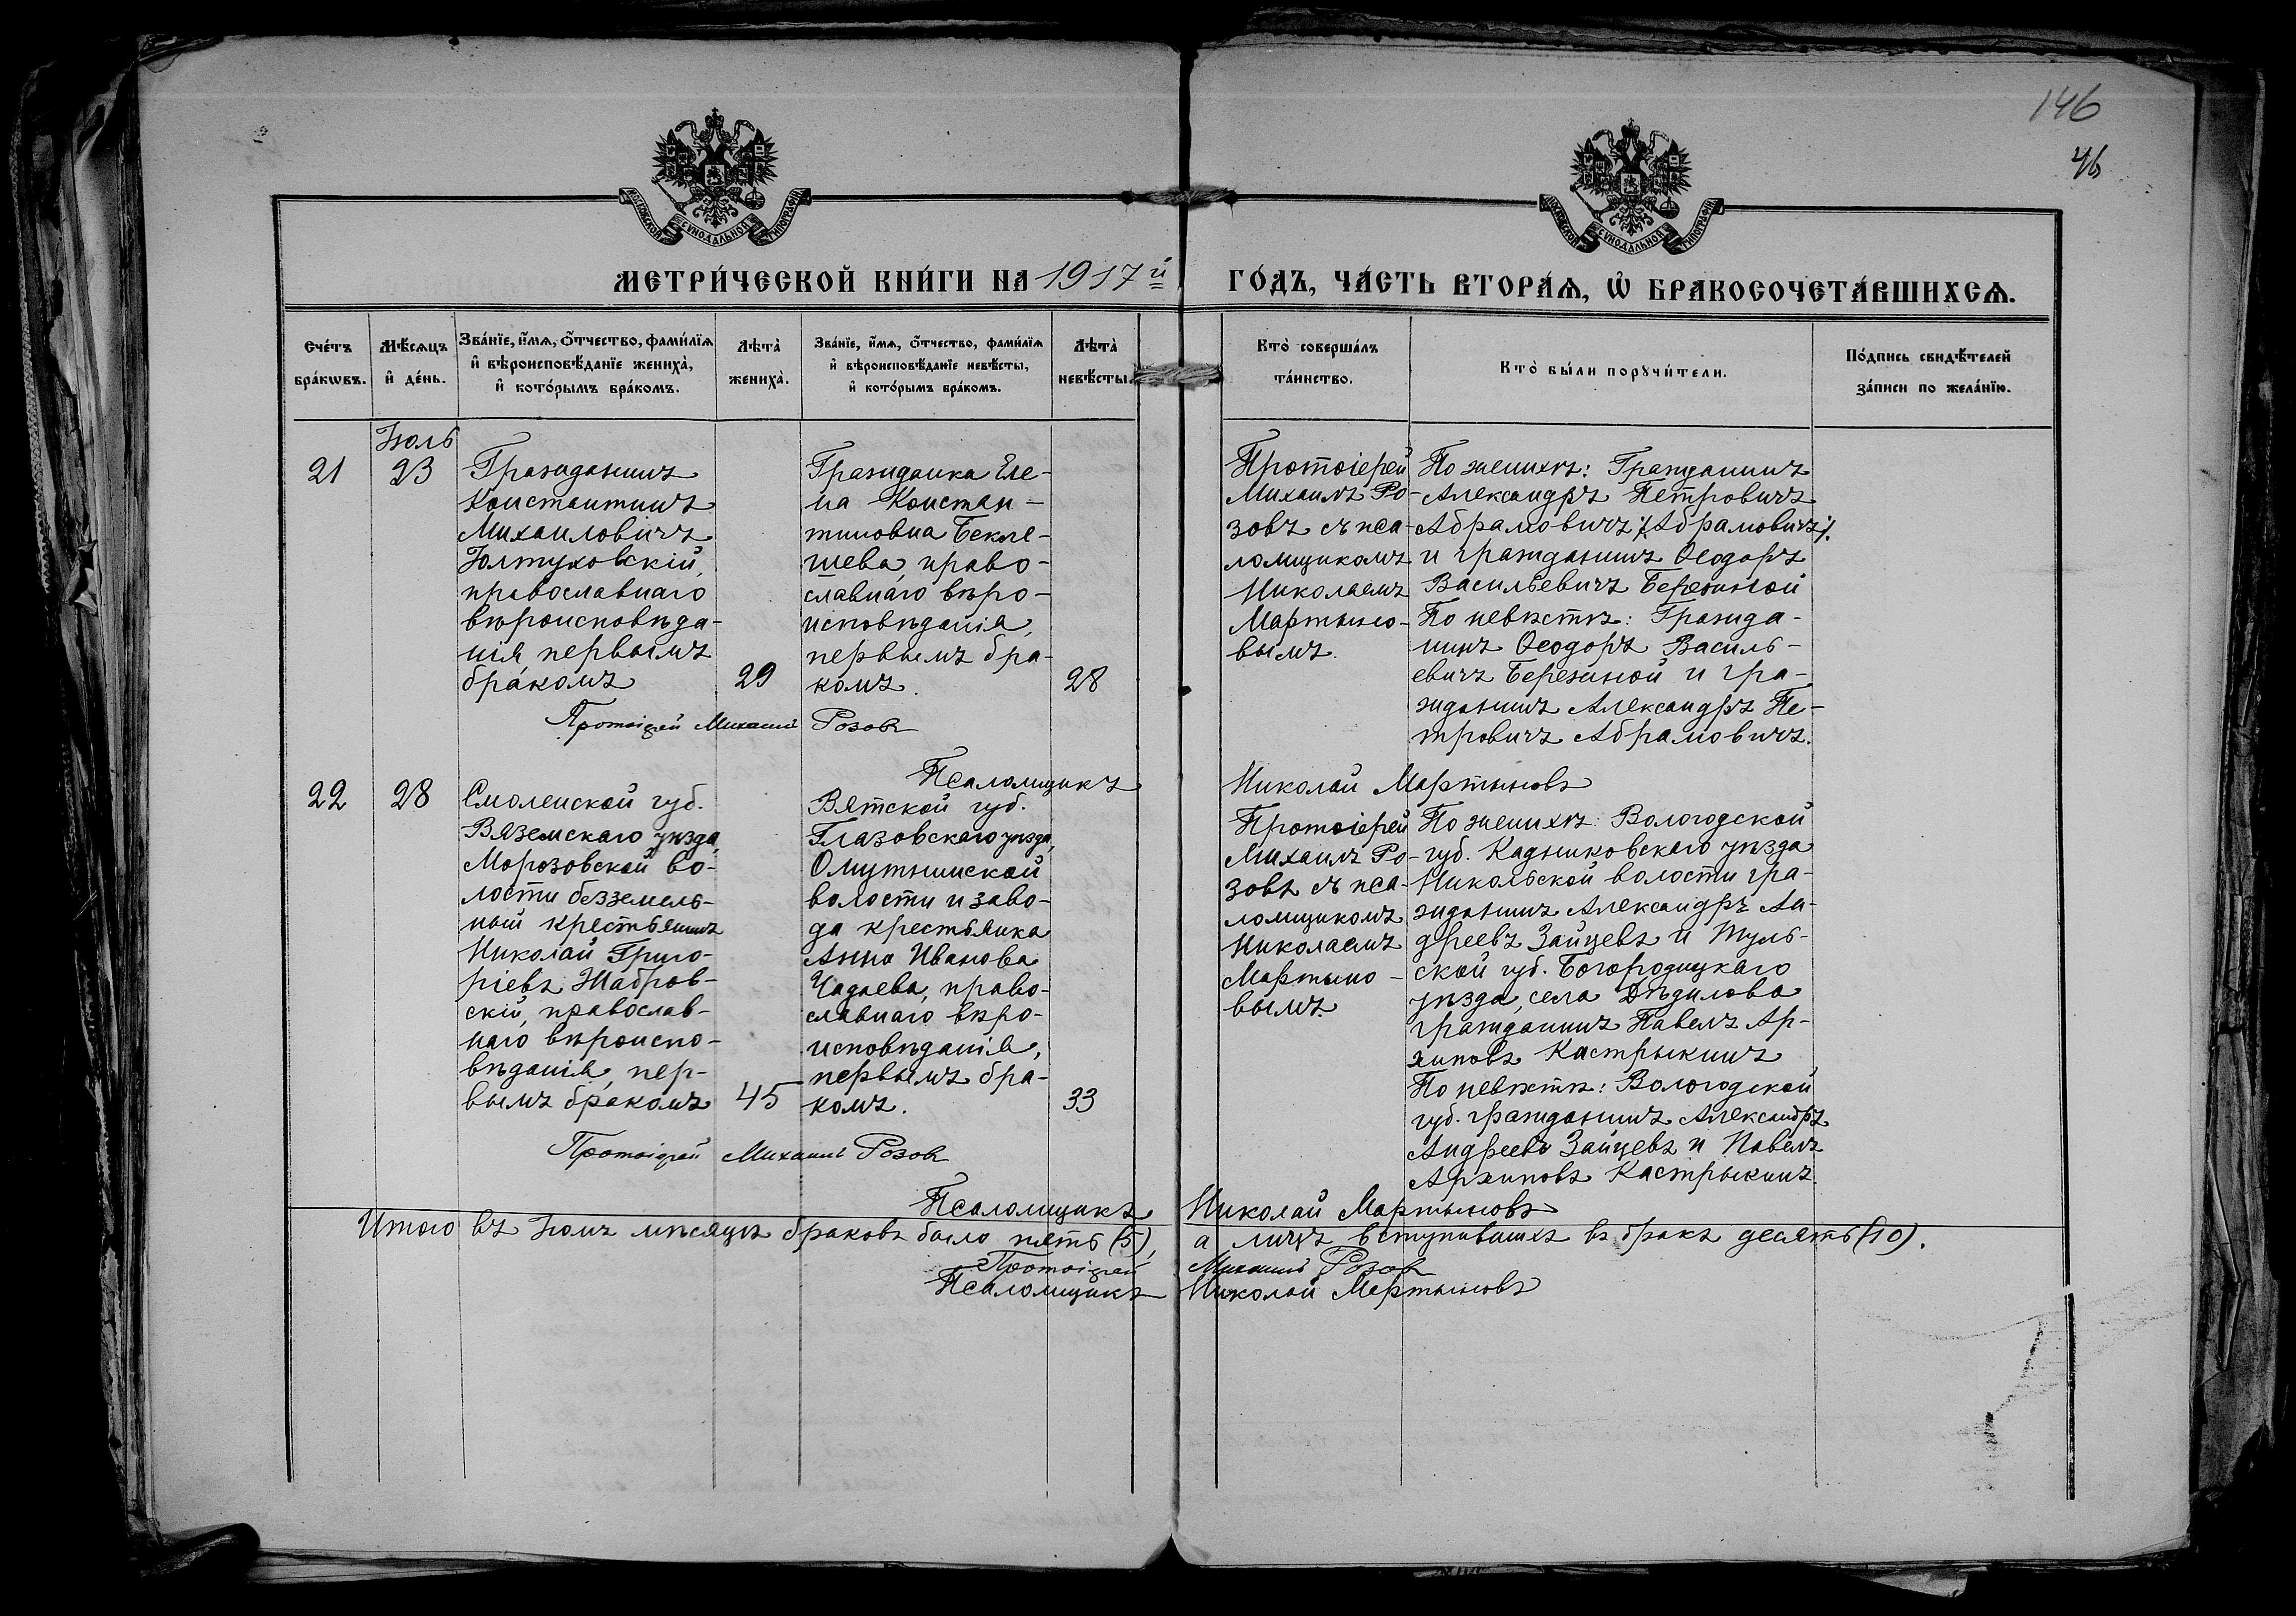 146
46
МОСКОВСКОЙ СѴНОДАЛЬНОЙ ТИПОГРАФІИ
МОСКОВСКОЙ СѴНОДАЛЬНОЙ ТИПОГРАФІИ
МЕТРИ́ЧЕСКОЙ КНИ́ГИ НА 1917й ГО́ДЪ, ЧА́СТЬ ВТОРА́Ѧ, Ѽ БРАКОСОЧЕТА́ВШИХСѦ.
Сче́тъ
бра́кѡвъ.
Мѣ́сѧцъ
и҆ де́нь.
Зва́нїе, и҆́мѧ, ѻ҆́тчество, фами́лїѧ
и҆ вѣроисповѣ́данїе жениха̀,
и҆ кото́рымъ бра́комъ.
Лѣ́та
жениха̀.
Зва́нїе, и҆́мѧ, ѻ҆́тчество, фами́лїѧ
и҆ вѣроисповѣ́данїе невѣ́сты,
и҆ кото́рымъ бра́комъ.
Лѣ́та
невѣ́сты.
Кто̀ соверша́лъ
та́инство.
Кто̀ бы́ли порꙋчи́тели.
По́дпись свидѣ́телей
за́писи по жела́нїю.
Іюль
21
23
Гражданинъ
Константинъ
Михаиловичъ
Юлтуховскій,
православнаго
вѣроисповѣда-
нія, первымъ
бракомъ
29
Гражданка Еле-
на Констан-
тиновна Бекле-
шева, право-
славнаго вѣро-
исповѣданія,
первымъ бра-
комъ.
28
Протоіерей
Михаилъ Ро-
зовъ съ пса-
ломщикомъ
Николаемъ
Мартыно-
вымъ.
По женихѣ: Гражданинъ
Александръ Петровичъ
Абрамовичъ /Абрамовичъ/.
и гражданинъ Ѳеодоръ
Васильевичъ Березиной
По невѣстѣ: Гражда-
нинъ Ѳеодоръ Василь-
евичъ Березиной и гра-
жданинъ Александръ Пе-
тровичъ Абрамовичъ.
Протоіерей Михаилъ Розовъ
Псаломщикъ Николай Мартыновъ
22
28
Смоленской губ.
Вяземскаго уѣзда,
Морозовской во-
лости безземель-
ный крестьянинъ
Николай Григо-
ріевъ Жабров-
скій, православ-
наго вѣроиспо-
вѣданія, пер-
вымъ бракомъ
45
Вятской губ.
Глазовскаго уѣзда,
Омутнинской
волости и заво-
да крестьянка
Анна Иванова
Чадаева, право-
славнаго вѣро-
исповѣданія,
первымъ бра-
комъ.
33
Протоіерей
Михаилъ Ро-
зовъ съ пса-
ломщикомъ
Николаемъ
Мартыно-
вымъ.
По женихѣ: Вологодской
губ. Кадниковскаго уѣзда
Никольской волости гра-
жданинъ Александръ Ан-
дреевъ Зайцевъ и Туль-
ской губ. Богородицкаго
уѣзда, села Дѣдилова
гражданинъ Павелъ Ар-
хиповъ Кастрыкинъ
По невѣстѣ: Вологодской
губ. гражданинъ Александръ
Андреевъ Зайцевъ и Павелъ
Архиповъ Кастрыкинъ.
Протоіерей Михаилъ Розовъ
Псаломщикъ Николай Мартыновъ
Итого въ Іюлѣ мѣсяцѣ браковъ было пять (5), а лицъ вступившихъ въ бракъ десять (10).
Протоіерей Михаилъ Розовъ
Псаломщикъ Николай Мартыновъ